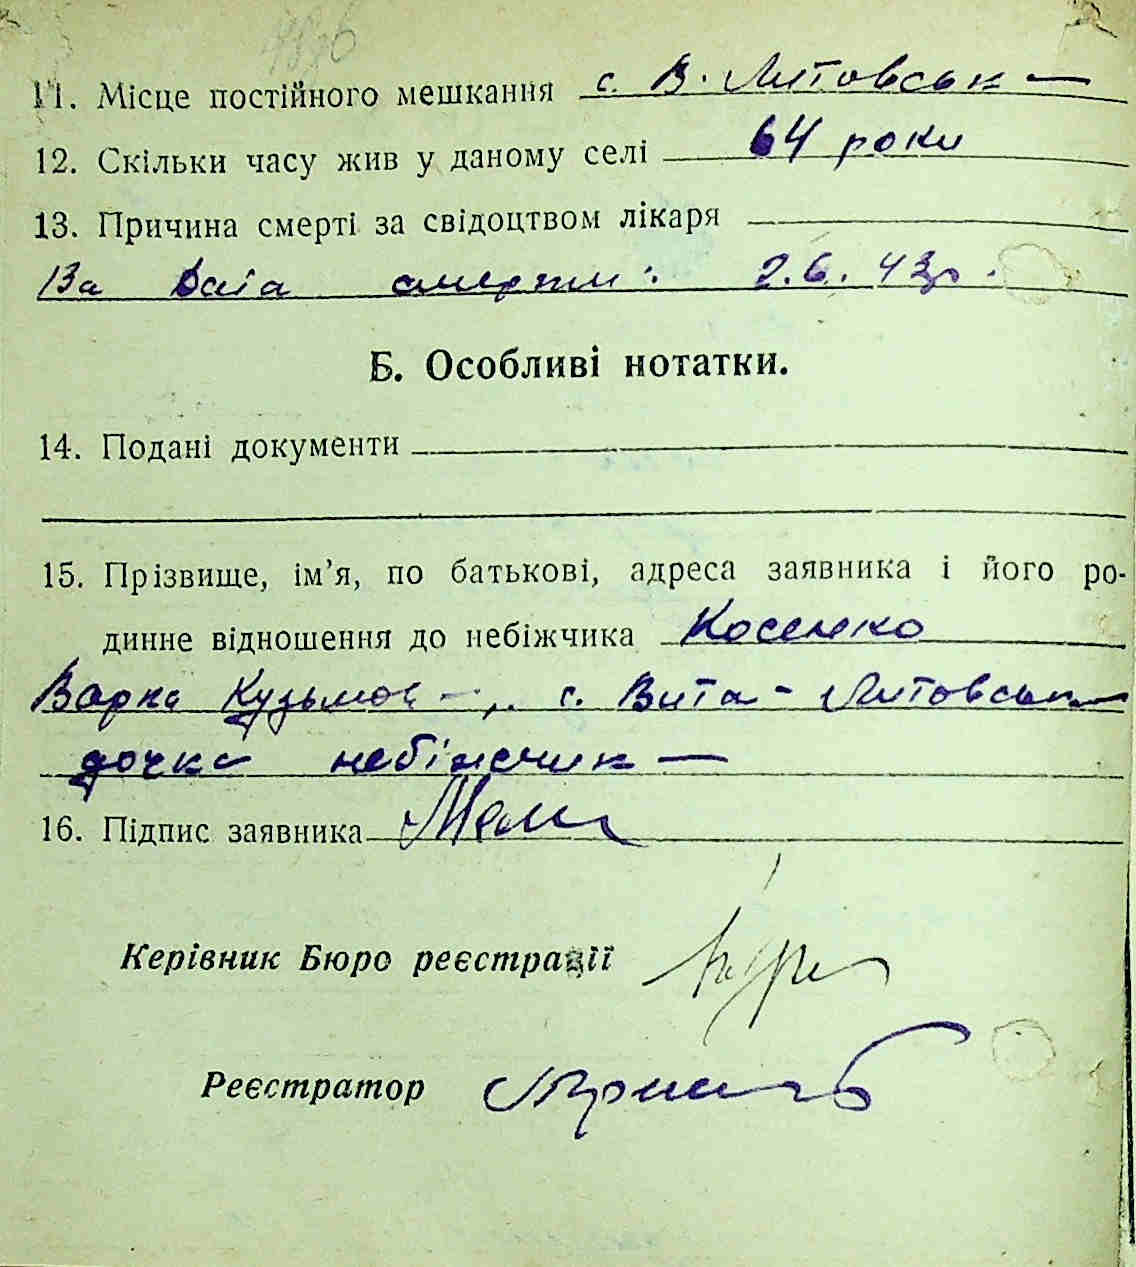 11. Місце постійного мешкання с. В. Литовськ
12. Скільки часу жив у даному селі 64 роки
13. Причина смерті за свідоцтвом лікаря
13а Дата смерти: 2.6.43р.
Б. Особливі нотатки.
14. Подані документи
15. Прізвище, ім’я, по батькові, адреса заявника і його ро-
динне відношення до небіжчика Косенко
Варка Кузьмов с. Вита-Литовськ
дочка небіжчик
16. Підпис заявника
Керівник Бюро реєстрації
Реєстратор